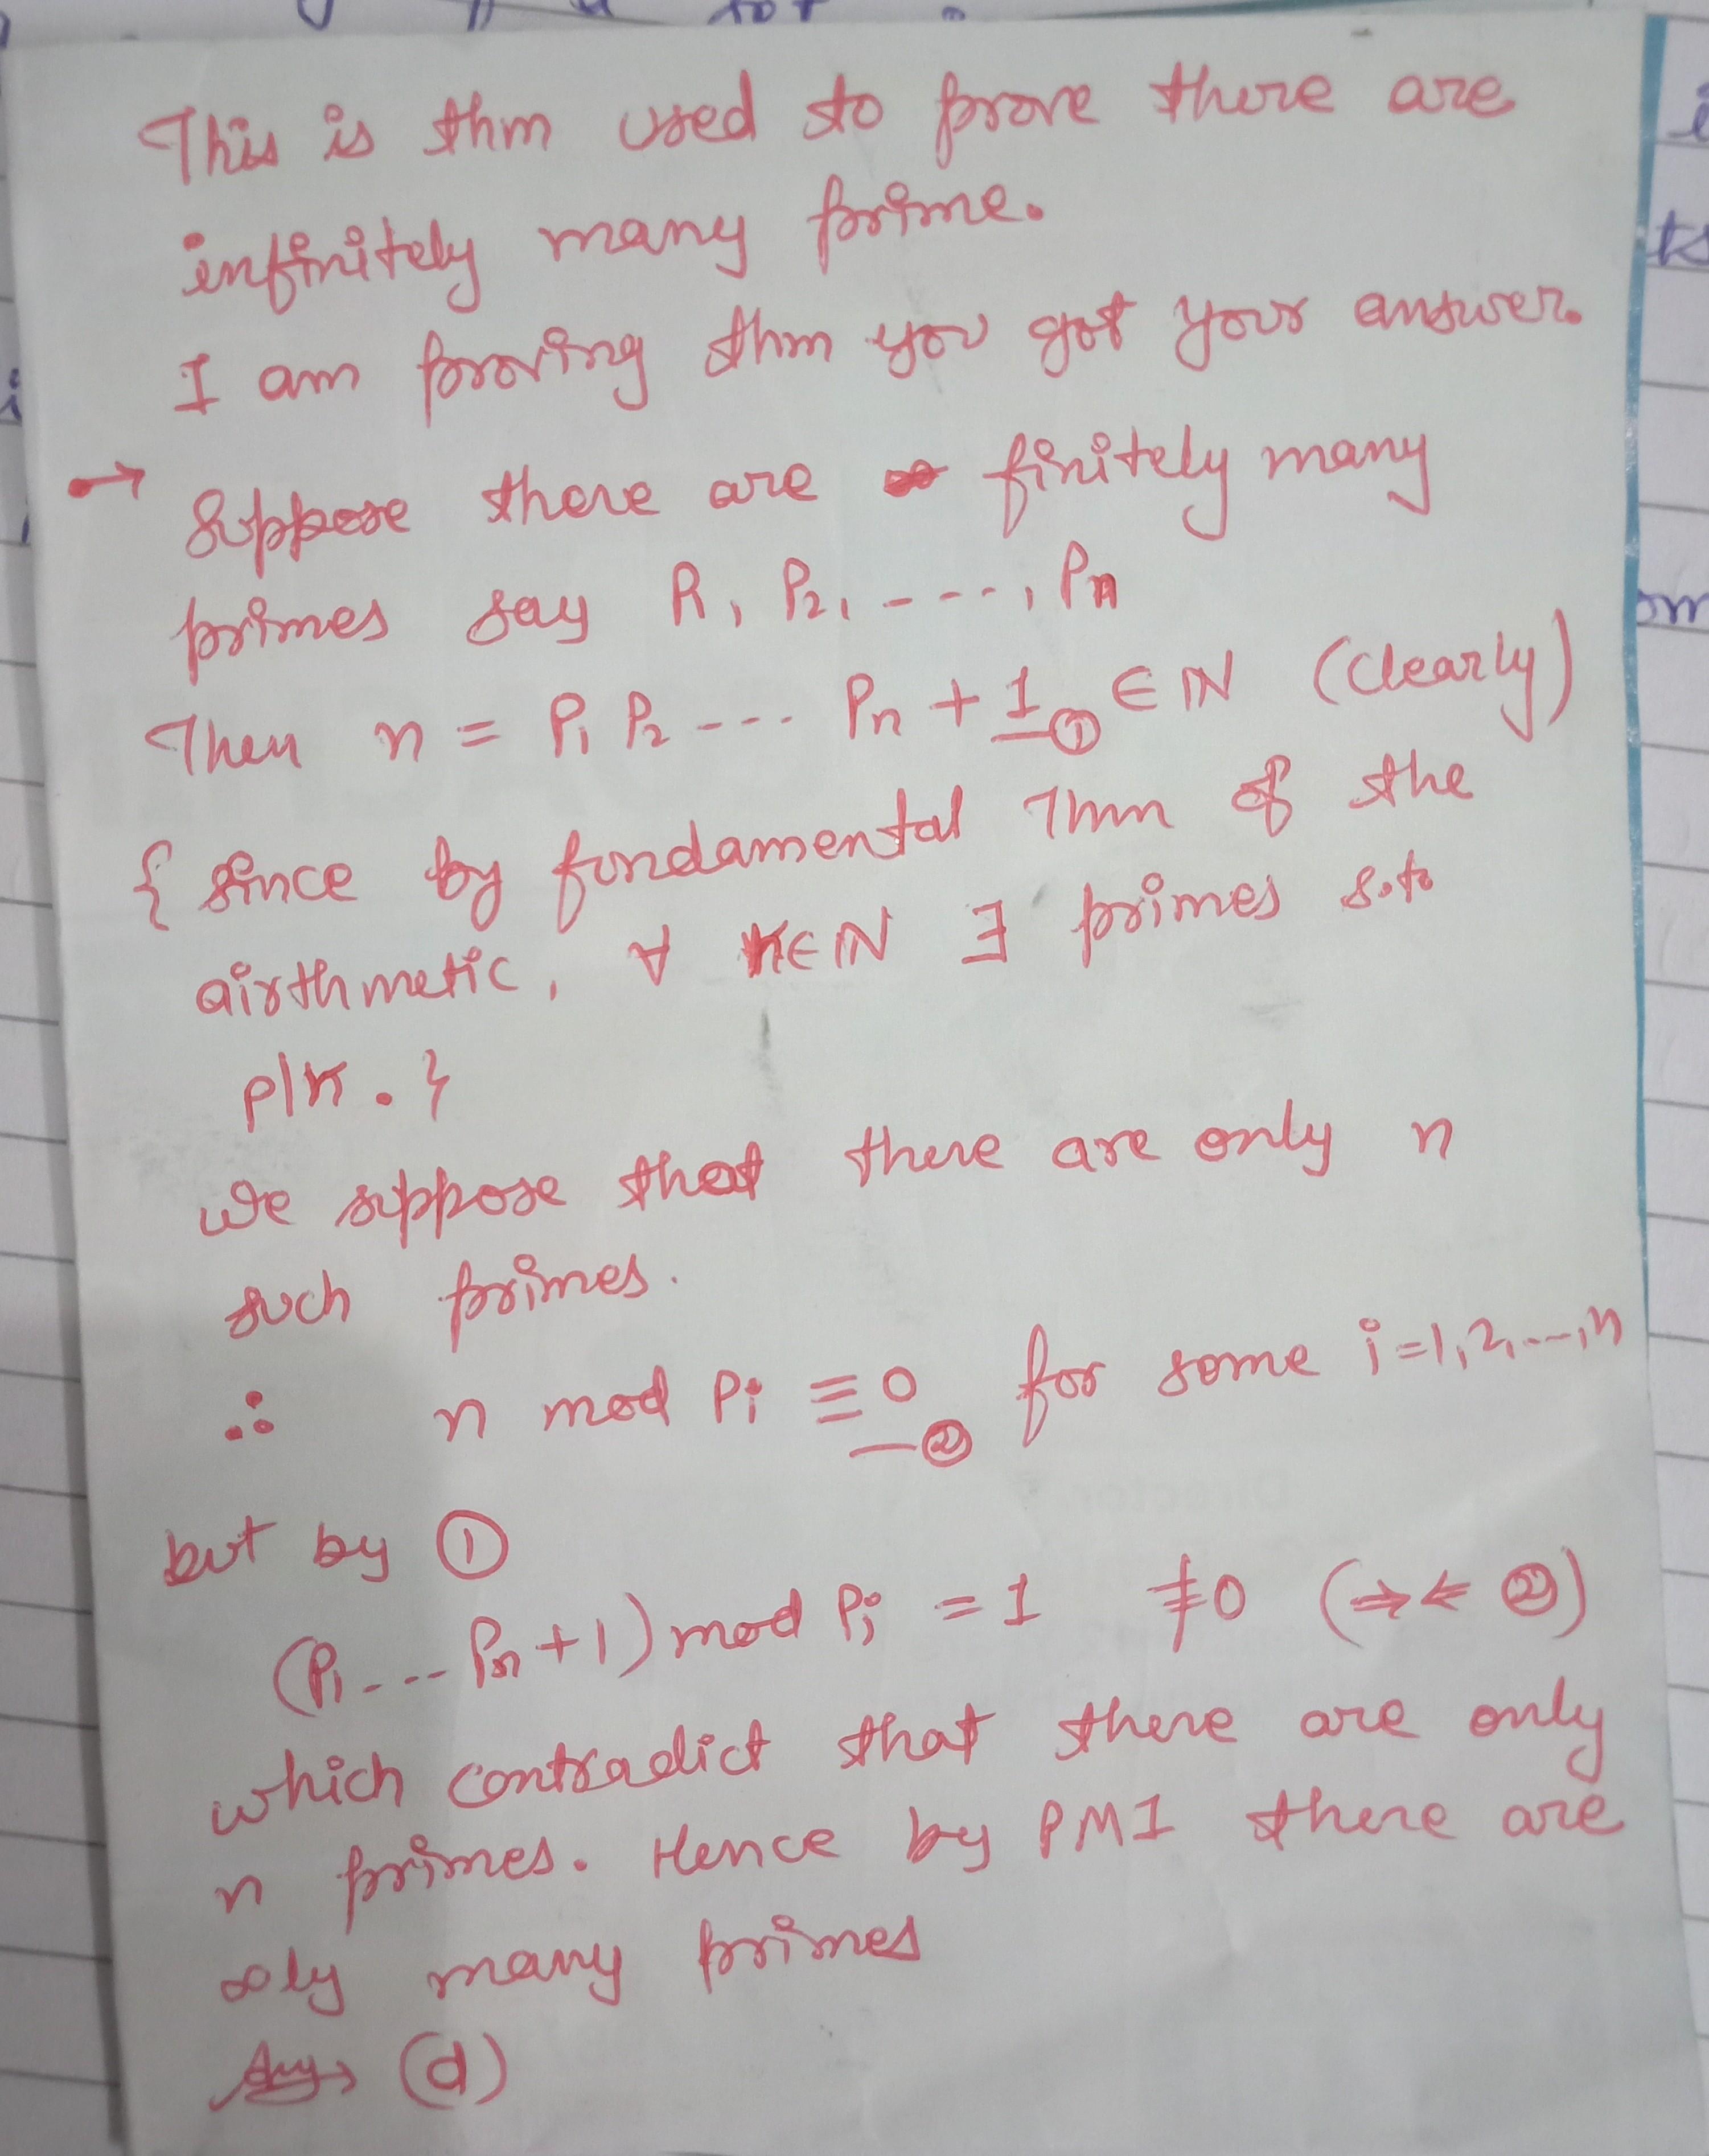 This is thm used to prove there are
infinitely many prime.
I am proving thm you got your answer.
→ Suppose there are finitely many
primes say P₁, P₂, ----, Pn
Then n = P₁ P₂ --- Pn + 1 —① ∈ ℕ (clearly)
{ since by fundamental Thm of the
airthmetic, ∀ n∈ℕ ∃ primes s.t.
p|n . }
we suppose that there are only n
such primes.
∴ n mod Pi ≡ 0 —② for some i=1,2,---,n
but by ①
(P₁--- Pn+1) mod Pi = 1 ≠0 (⇒⇐ ②)
which contradict that there are only
n primes. Hence by PMI there are
∞ly many primes
Ans→ (d)